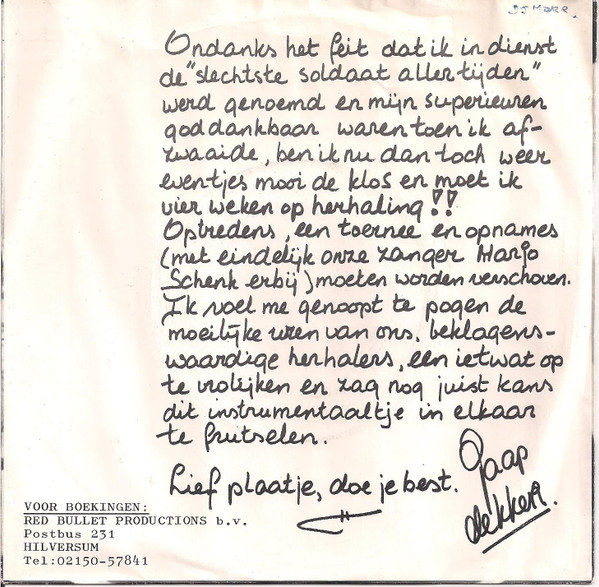 Ondanks het feit dat ik in dienst
de "slechtste soldaat aller tijden"
werd genoemd en mijn superieuren
god dankbaar waren toen ik af-
zwaaide, ben ik nu dan toch weer
eventjes mooi de klos en moet ik
vier weken op herhaling!!
Optredens, een toernee en opnames
(met eindelijk onze zanger Marjo
Schenk erbij) moeten worden verschoven.
Ik voel me genoopt te pogen de
moeilijke uren van ons, beklagens-
waardige herhalers, een ietwat op
te vrolijken en zag nog juist kans
dit instrumentaaltje in elkaar
te frutselen.
Lief plaatje, doe je best.
Jaap
Dekker.
VOOR BOEKINGEN:
RED BULLET PRODUCTIONS b.v.
Postbus 231
HILVERSUM
Tel:02150-57841